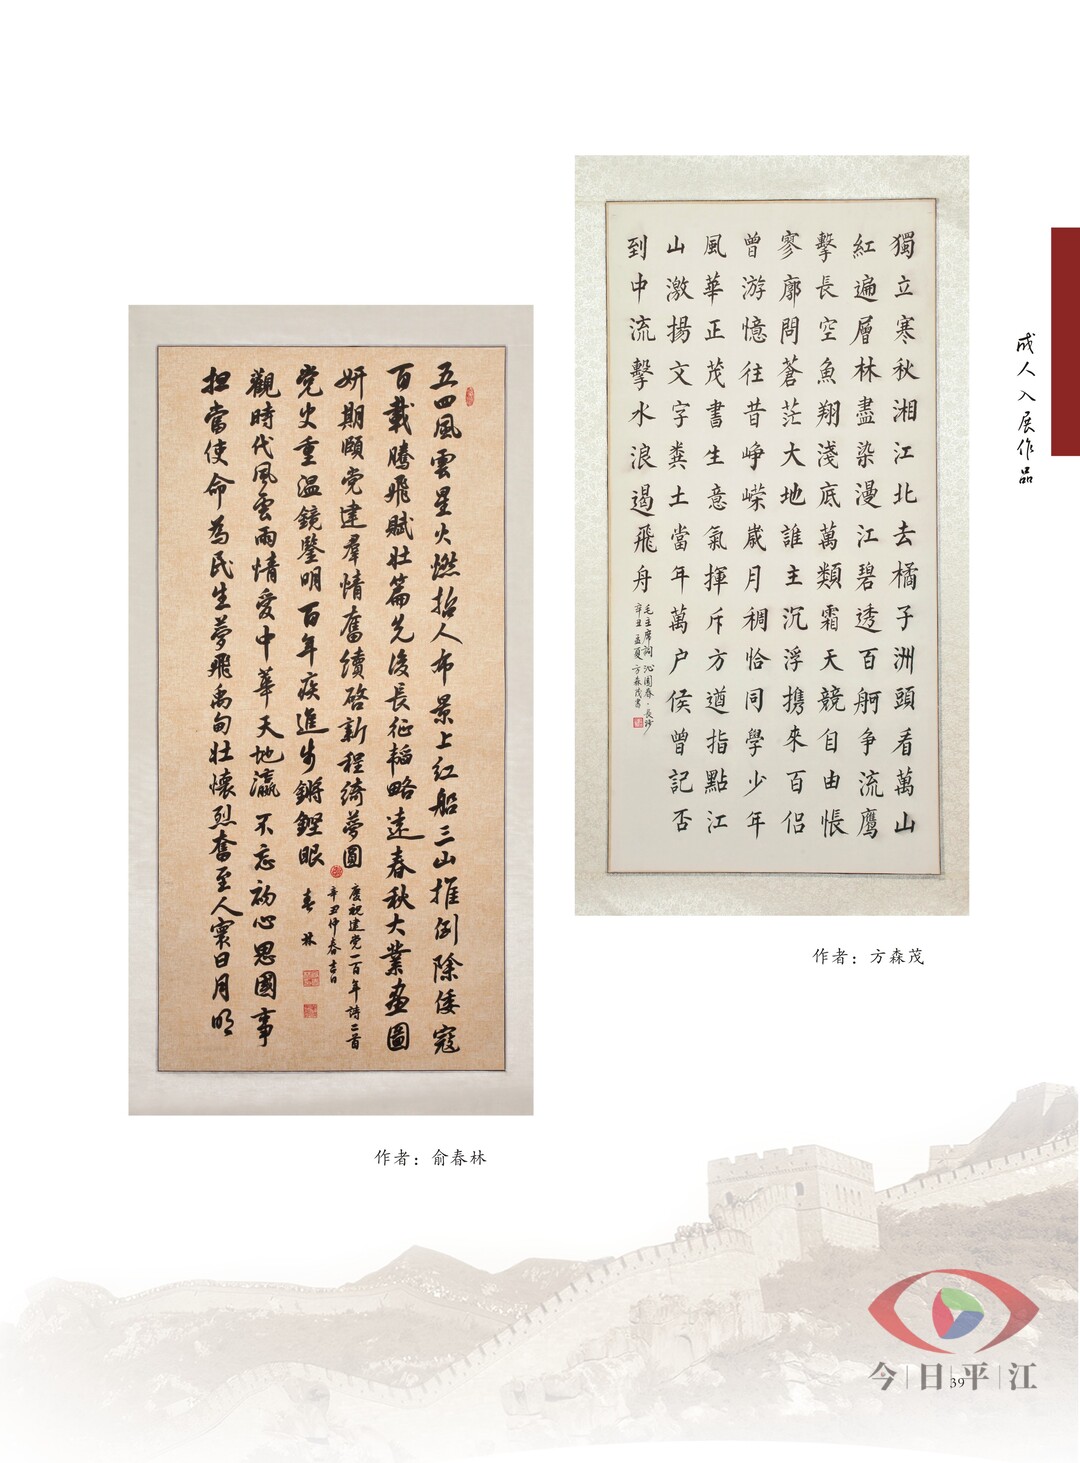 成人入展作品
獨立寒秋湘江北去橘子洲頭看萬山
紅遍層林盡染漫江碧透百舸争流鹰
擊長空魚翔淺底萬類霜天競自由悵
寥廓問蒼茫大地誰主沉浮携來百侣
曾游憶往昔崢嶸歲月稠恰同學少年
風華正茂書生意氣揮斥方遒指點江
山激揚文字糞土當年萬户侯曾記否
到中流擊水浪遏飛舟
毛主席詞沁園春·長沙
辛丑孟夏方森茂書
作者：方森茂
五四風雲星火燃人布景上红船三山推倒除倭寇
百載騰飛賦壮篇先後長征韬略遠春秋大業画圖
妍期頤党建羣情奮續啓新程綺夢圓
慶祝建党一百年詩二首
辛丑仲春吉日
党史重温鏡鑒明百年疾進步鏘鏗眼
春林
觀時代風雲雨情愛中華天地瀛不忘初心思國事
担當使命為民生夢飛禹甸壮懷烈奮至人寰日月明
作者：俞春林
今日平江
39